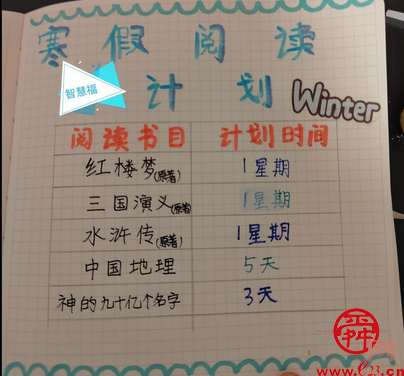 寒假阅读
智慧福
计划
Winter
阅读书目 计划时间
红楼梦(原著) 1星期
三国演义(原著) 1星期
水浒传(原著) 1星期
中国地理 5天
神的九十亿个名字 3天
舜
www.e23.cn